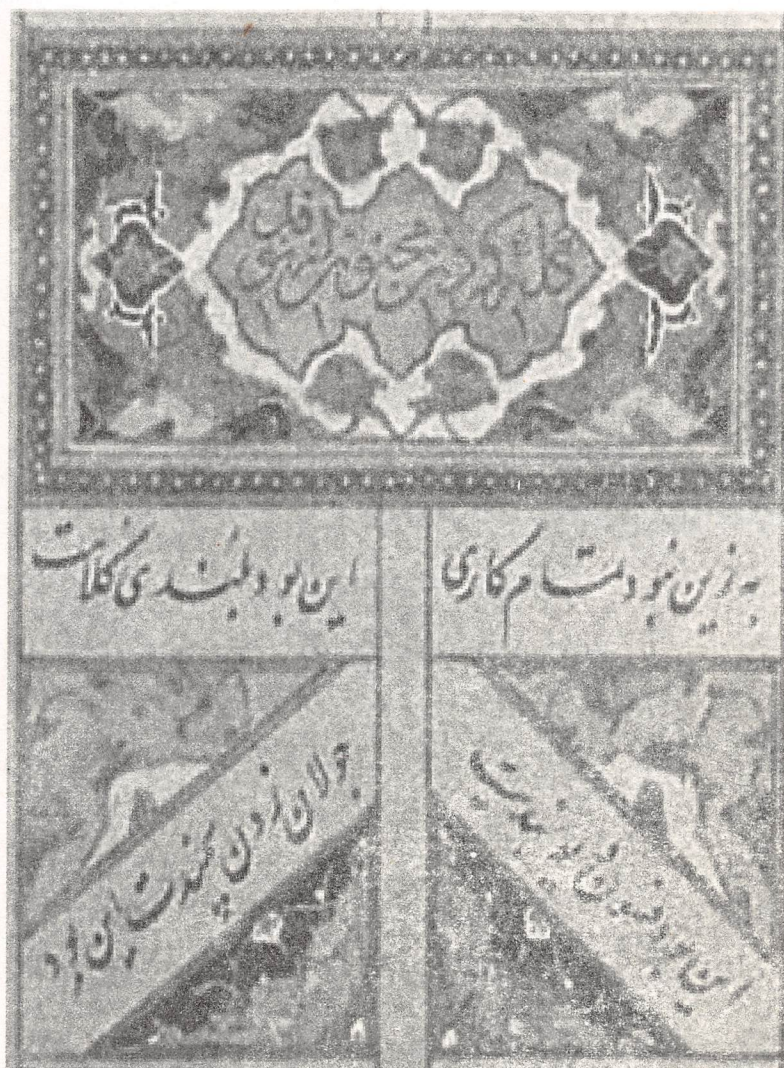 به زین نبود تمام کاری
این بود بلندی کلاهت
این بود فسون دیو بندیت
جولان زدن سمندت این بود